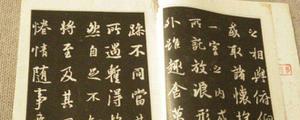 之相與俯仰
或取諸懷抱
一室之内
託放浪形
外雖趣舍萬
躁不同當其
所遇暫得於
然自足不
將至及其
惓情隨事